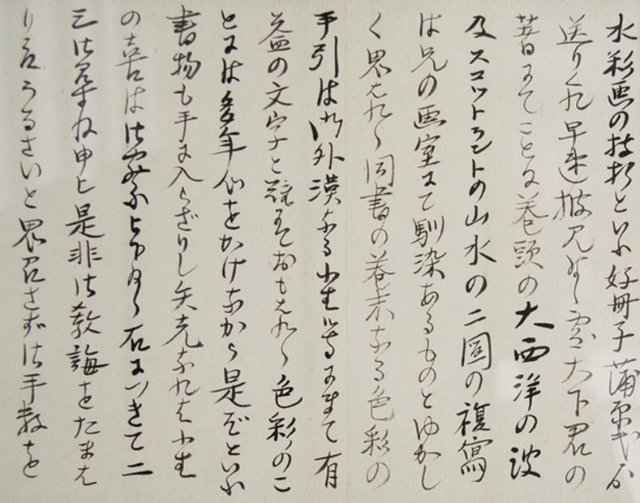 水彩画の技折といふ好冊子蒲原君より
送りくれ早速披見致候処大下君の
昔にてことに巻頭の大西洋の波
及スコットランドの山水の二図の複写
は兄の画室にて馴染あるものとゆかし
く思はれ候同書の巻末なる色彩の
手引は門外漢なる小生等にまで有
益の文字と競そおもはれ候色彩のこ
とには多年心をかけながら是ぞといふ
書物も手に入らざりし矢先なれば小生
の喜は御察し下され度候右につきて二
三御尋ね申上是非御教誨をたまは
り度うるさいと思召さず御手数を